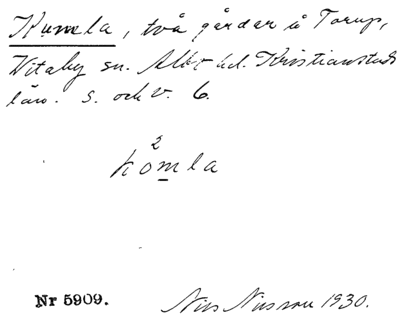 Kumla, två gårder å Torup,
Vitaby sn. Albo hd. Kristianstads
län. S. och V. 6.
2
komla
Nr 5909.
Nils Nilsson 1930.